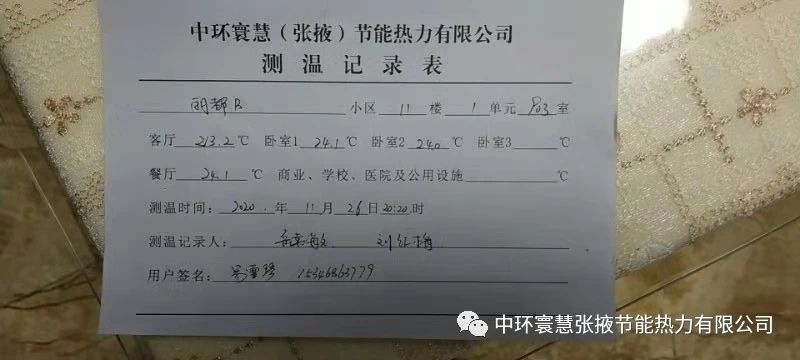 中环寰慧（张掖）节能热力有限公司
测温记录表
丽都B 小区 11 楼 1 单元 903 室
客厅 23.2 ℃ 卧室1 24.1 ℃ 卧室2 24.0 ℃ 卧室3 ℃
餐厅 24.1 ℃ 商业、学校、医院及公用设施 ℃
测温时间： 2020. 年 11 月 26 日 20:20 时
测温记录人： 刘红梅
用户签名： 15346863779
中环寰慧张掖节能热力有限公司